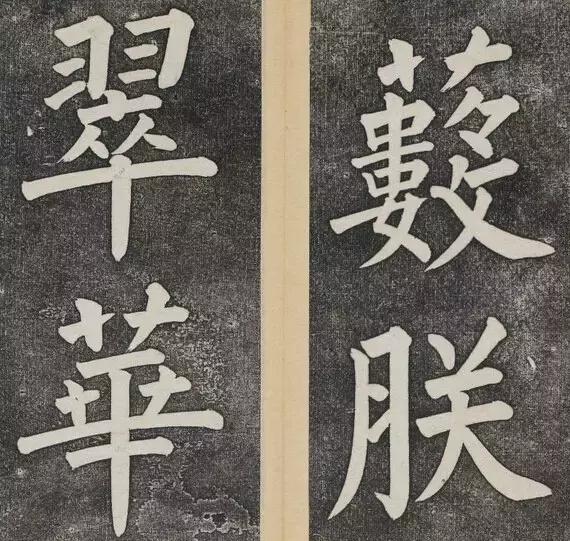 藪朕
翠華